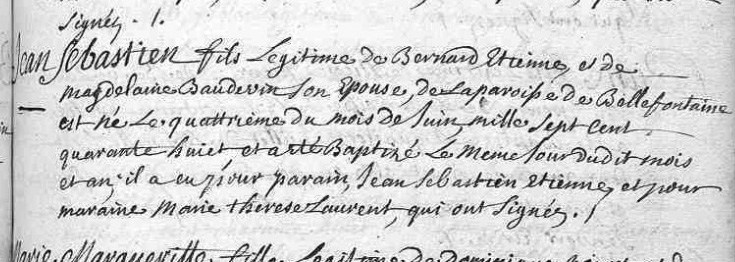 signéz. /.
Jean Sebastien fils Legitime de Bernard Etienne, et de
magdelaine Baudevin son Epouse, de Laparoisse de Bellefontaine
est né Le quattriéme du mois de Juin, mille sept cent
quarante huict et a eté Baptizé Le Meme Jour dudit mois
et an, il a eu pour parain, Jean Sebastien Etienne, et pour
maraine Marie therese Laurent, qui ont Signéz. /
Marie Margueritte fille Legitime de dominique